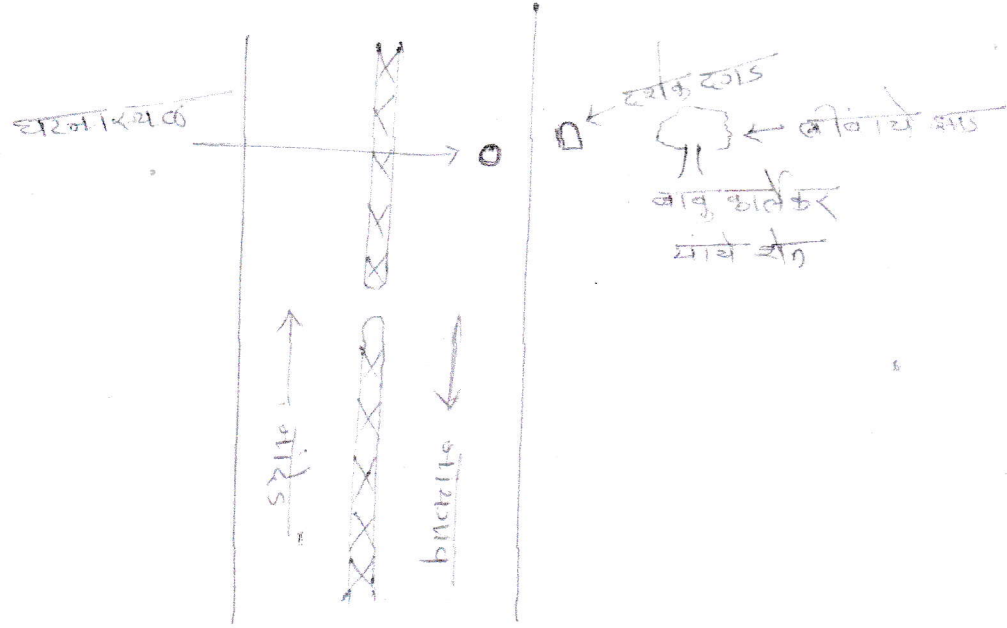 घटनास्थळ
दर्शक दगड
लींबाचे झाड
बाबु कार्लेकर
यांचे शेत
नांदेड